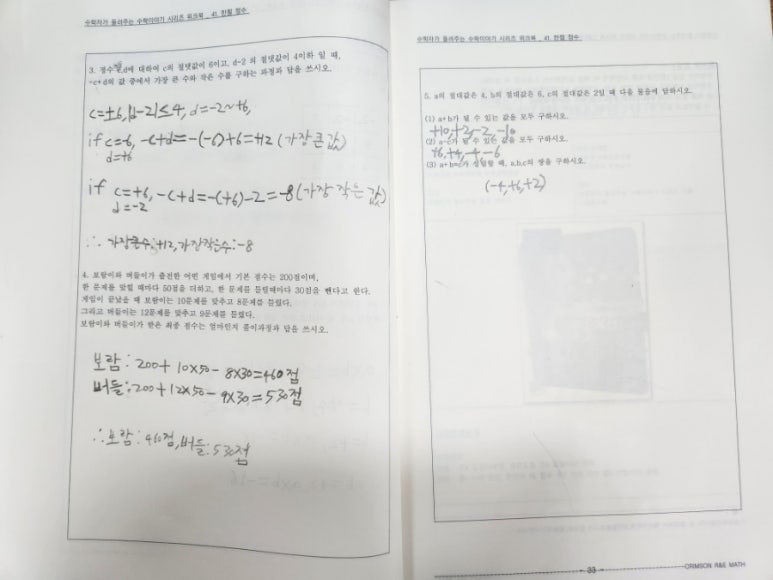 수학자가 들려주는 수학이야기 시리즈 워크북 _ 41. 한켤 정수
3. 정수 c,d에 대하여 c의 절댓값이 6이고, d-2 의 절댓값이 4이하 일 때,
-c+d의 값 중에서 가장 큰 수와 작은 수를 구하는 과정과 답을 쓰시오.
c=±6, |d-2|≤4, d=-2~+6,
if c=-6, -c+d=-(-6)+6=+12 (가장 큰 값)
d=+6
if c=+6, -c+d=-(+6)-2=-8 (가장 작은 값)
d=-2
∴ 가장큰수:+12, 가장작은수:-8
4. 보람이와 버들이가 출전한 어떤 게임에서 기본 점수는 200점이며,
한 문제를 맞힐 때마다 50점을 더하고, 한 문제를 틀릴때마다 30점을 뺀다고 한다.
게임이 끝났을 때 보람이는 10문제를 맞추고 8문제를 틀렸다.
그리고 버들이는 12문제를 맞추고 9문제를 틀렸다.
보람이와 버들이가 받은 최종 점수는 얼마인지 풀이과정과 답을 쓰시오.
보람: 200+10×50-8×30=460점
버들: 200+12×50-9×30=530점
∴ 보람: 460점, 버들: 530점
수학자가 들려주는 수학이야기 시리즈 워크북 _ 41. 한켤 정수
5. a의 절대값은 4, b의 절대값은 6, c의 절대값은 2일 때 다음 물음에 답하시오.
(1) a+b가 될 수 있는 값을 모두 구하시오.
+10, +2, -2, -10
(2) a-c가 될 수 있는 값을 모두 구하시오.
+6, +4, -4 -6
(3) a+b=c가 성립할 때, a,b,c의 쌍을 구하시오.
(-4, +6, +2)
- 33 -
CRIMSON R&E MATH